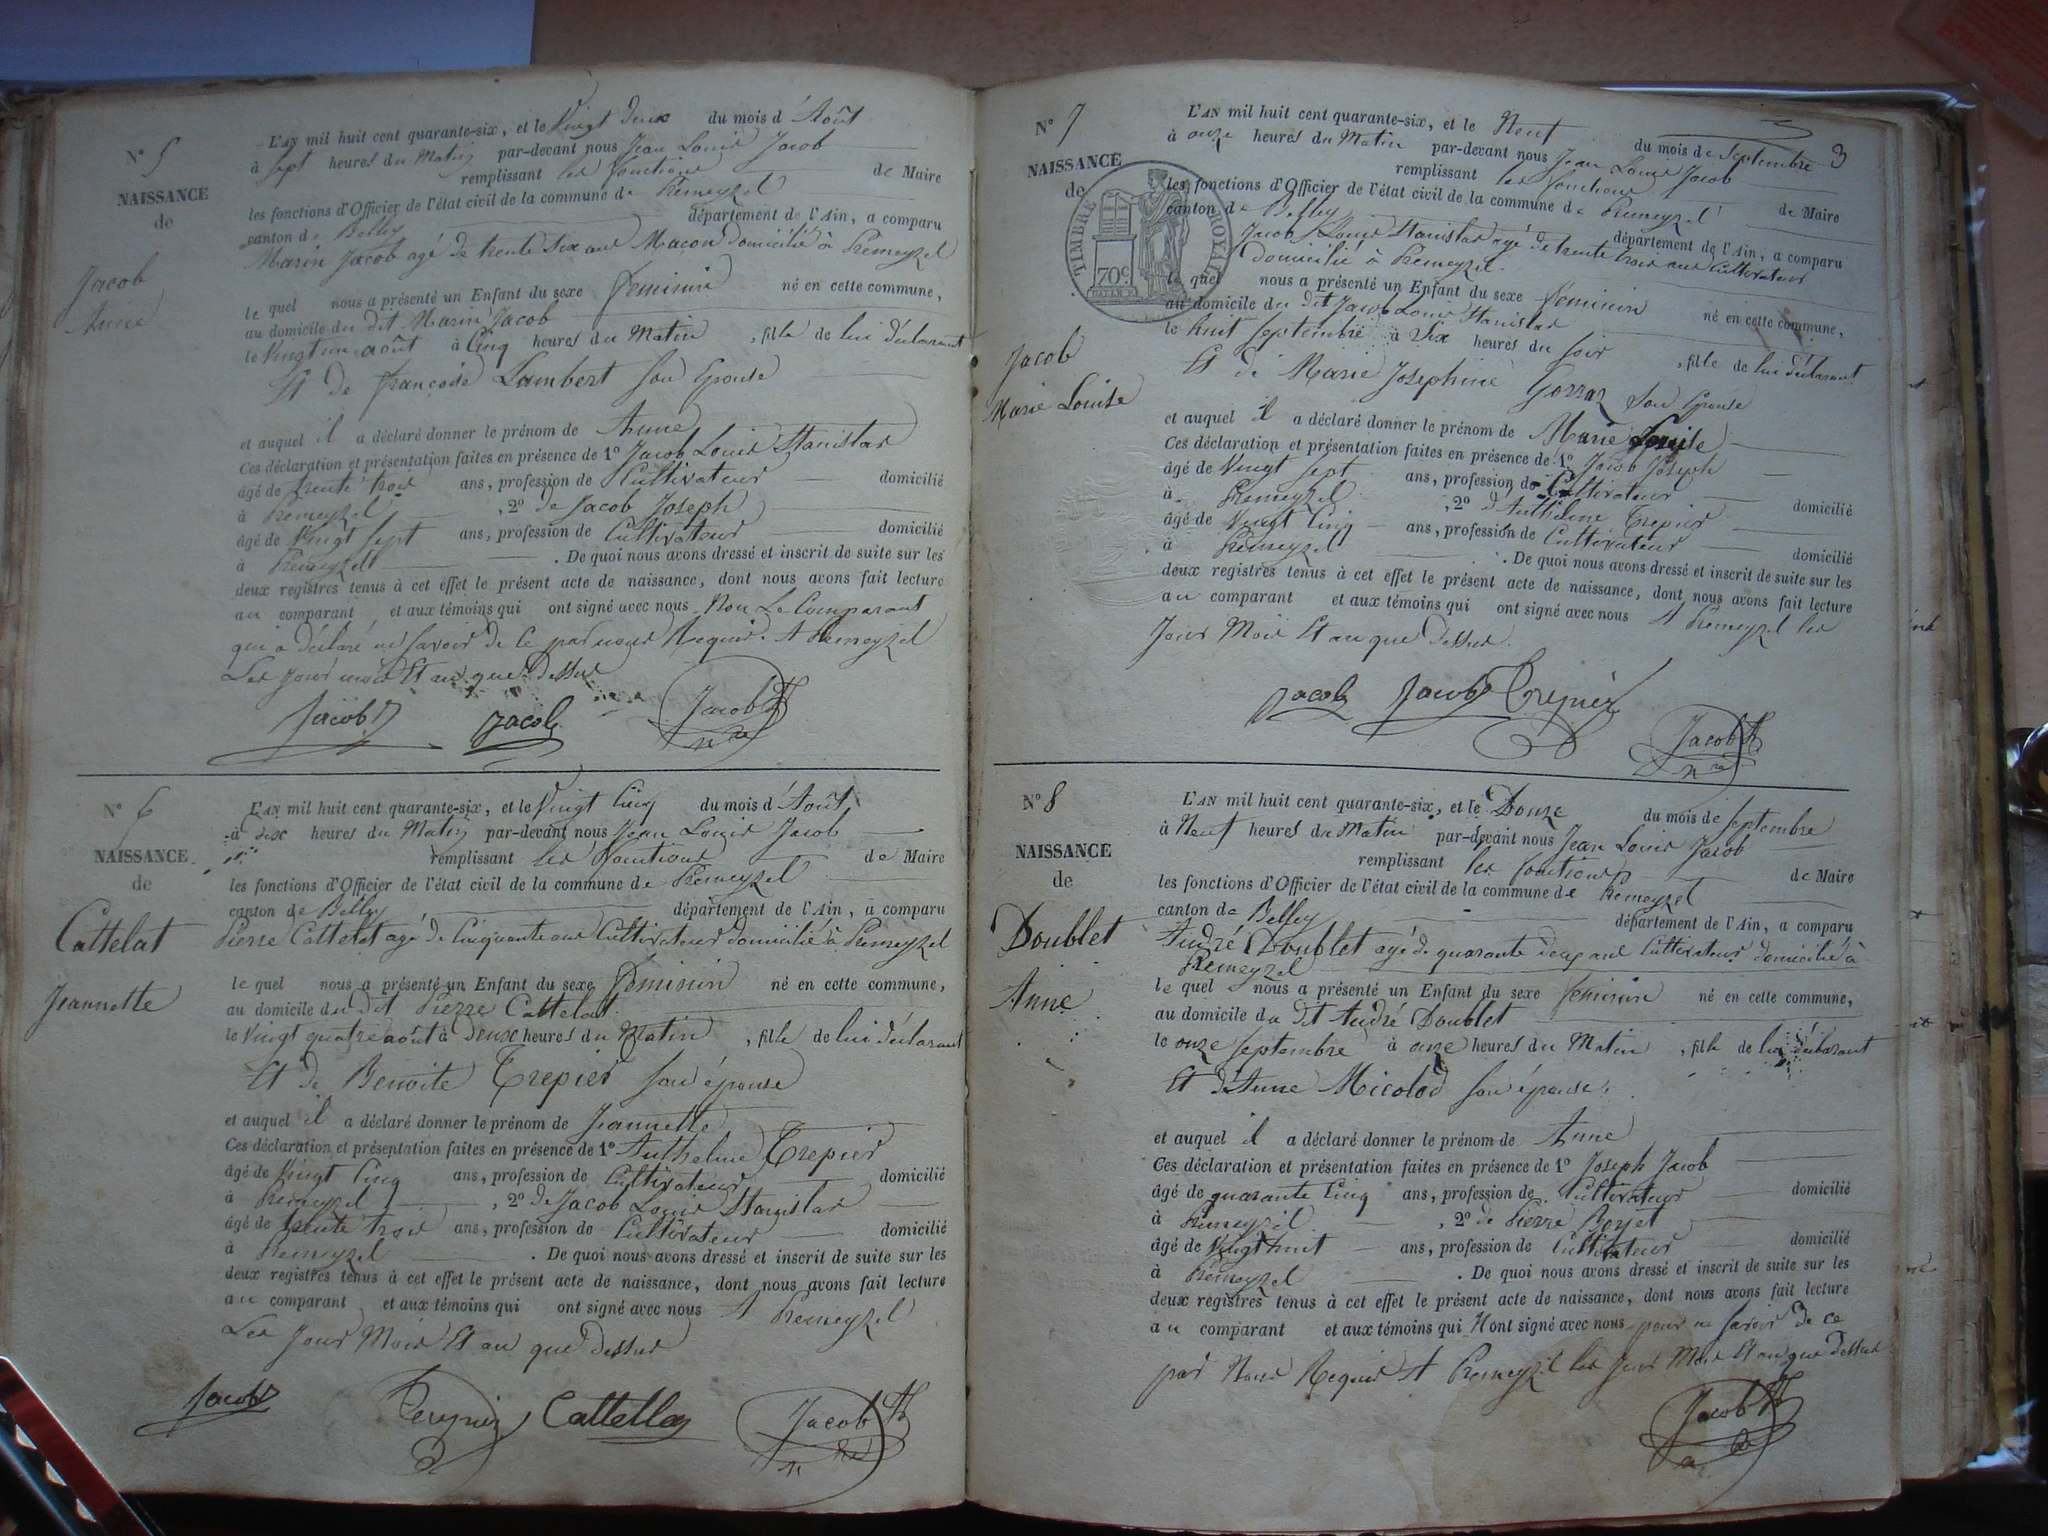 N° 5
NAISSANCE
de
Jacob
Anne
L'AN mil huit cent quarante-six, et le Vingt deux du mois d'Août
à Sept heures du Matin par-devant nous Jean Louis Jacob
remplissant les fonctions de Maire
les fonctions d'Officier de l'état civil de la commune de Premeyzel
canton de Belley département de l'Ain, a comparu
Marin Jacob agé de trente six ans Macon domicilié à Premeyzel
le quel nous a présenté un Enfant du sexe feminin né en cette commune,
au domicile du dit Marin Jacob
le Vingt un août à Cinq heures du Matin, fille de lui déclarant
Et de françoise Lambert son Epouse
et auquel il a déclaré donner le prénom de Anne
Ces déclaration et présentation faites en présence de 1° Jacob Louis Stanislas
âgé de trente trois ans, profession de Cultivateur domicilié
à Premeyzel, 2° de Jacob Joseph
âgé de Vingt sept ans, profession de Cultivateur domicilié
à Premeyzel. De quoi nous avons dressé et inscrit de suite sur les
deux registres tenus à cet effet le présent acte de naissance, dont nous avons fait lecture
au comparant, et aux témoins qui ont signé avec nous Non Le Comparant
qui a déclaré ne savoir de Ce par nous Requis. A Premeyzel
Les jour mois Et an que Dessus
Jacob Jacob Jacob
N° 6
NAISSANCE
de
Cattelat
Jeannette
L'AN mil huit cent quarante-six, et le Vingt Cinq du mois d'Août
à six heures du Matin par-devant nous Jean Louis Jacob
remplissant les fonctions de Maire
les fonctions d'Officier de l'état civil de la commune de Premeyzel
canton de Belley département de l'Ain, a comparu
Pierre Cattelat agé de Cinquante ans Cultivateur domicilié à Premeyzel
le quel nous a présenté un Enfant du sexe feminin né en cette commune,
au domicile du dit Pierre Cattelat
le Vingt quatre août à Deux heures du Matin, fille de lui déclarant
Et de Benoite Trepier son épouse
et auquel il a déclaré donner le prénom de Jeannette
Ces déclaration et présentation faites en présence de 1° Anthelme Trepier
âgé de Vingt Cinq ans, profession de Cultivateur domicilié
à Premeyzel, 2° de Jacob Louis Stanislas
âgé de trente trois ans, profession de Cultivateur domicilié
à Premeyzel. De quoi nous avons dressé et inscrit de suite sur les
deux registres tenus à cet effet le présent acte de naissance, dont nous avons fait lecture
au comparant et aux témoins qui ont signé avec nous A Premeyzel
Les Jour Mois Et an que dessus
Jacob Cattella Jacob
3
N° 7
NAISSANCE
de
TIMBRE ROYAL
70c.
Jacob
Marie Louise
L'AN mil huit cent quarante-six, et le Neuf du mois de Septembre
à onze heures du Matin par-devant nous Jean Louis Jacob
remplissant les fonctions de Maire
les fonctions d'Officier de l'état civil de la commune de Premeyzel
canton de Belley département de l'Ain, a comparu
Jacob Louis Stanislas agé de trente trois ans Cultivateur
Domicilié à Premeyzel.
le quel nous a présenté un Enfant du sexe feminin né en cette commune,
au domicile du dit Jacob Louis Stanislas
le huit Septembre à Six heures du Soir, fille de lui déclarant
Et de Marie Josephine Gorraz son Epouse
et auquel il a déclaré donner le prénom de Marie Louise
Ces déclaration et présentation faites en présence de 1° Jacob Joseph
âgé de Vingt sept ans, profession de Cultivateur domicilié
à Premeyzel, 2° d'Anthelme Trepier
âgé de Vingt Cinq ans, profession de Cultivateur domicilié
à Premeyzel. De quoi nous avons dressé et inscrit de suite sur les
deux registres tenus à cet effet le présent acte de naissance, dont nous avons fait lecture
au comparant et aux témoins qui ont signé avec nous A Premeyzel les
Jour Mois Et an que Dessus.
Jacob Jacob Trepier
Jacob
N° 8
NAISSANCE
de
Doublet
Anne
L'AN mil huit cent quarante-six, et le Douze du mois de Septembre
à Neuf heures du Matin par-devant nous Jean Louis Jacob
remplissant les fonctions de Maire
les fonctions d'Officier de l'état civil de la commune de Premeyzel
canton de Belley département de l'Ain, a comparu
André Doublet agé de quarante ans Cultivateur domicilié à
Premeyzel
le quel nous a présenté un Enfant du sexe feminin né en cette commune,
au domicile du dit André Doublet
le onze Septembre à onze heures du Matin, fille de lui déclarant
Et d'Anne Micolod son épouse.
et auquel il a déclaré donner le prénom de Anne
Ces déclaration et présentation faites en présence de 1° Joseph Jacob
âgé de quarante Cinq ans, profession de Cultivateur domicilié
à Premeyzel, 2° de Pierre
âgé de Vingt huit ans, profession de Cultivateur domicilié
à Premeyzel. De quoi nous avons dressé et inscrit de suite sur les
deux registres tenus à cet effet le présent acte de naissance, dont nous avons fait lecture
au comparant et aux témoins qui N'ont signé avec nous pour ne savoir de ce
par Nous Requis A Premeyzel les Jour Mois Et an que dessus
Jacob